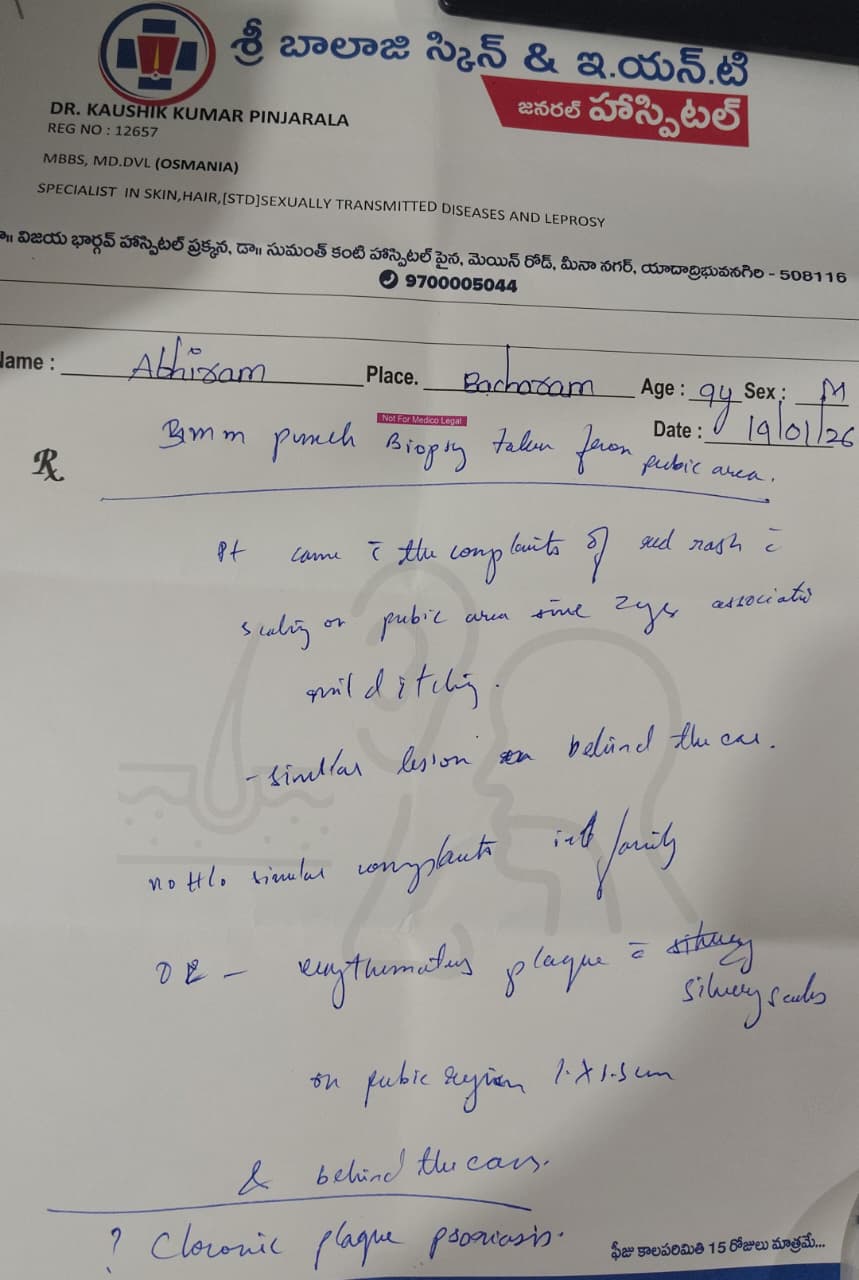 శ్రీ బాలాజి స్కిన్ & ఇ.యన్.టి
జనరల్ హాస్పిటల్
DR. KAUSHIK KUMAR PINJARALA
REG NO : 12657
MBBS, MD.DVL (OSMANIA)
SPECIALIST IN SKIN,HAIR,[STD]SEXUALLY TRANSMITTED DISEASES AND LEPROSY
డా॥ విజయ భార్గవ్ హాస్పిటల్ ప్రక్కన, డా॥ సుమంత్ కంటి హాస్పిటల్ పైన, మెయిన్ రోడ్, మీనా నగర్, యాదాద్రిభువనగిరి - 508116
9700005044
Name : Abhiram Place. Bacharam Age : 9y Sex : M
Not For Medico Legal
Date : 19/01/26
Rx
mm punch Biopsy taken from pubic area.
Pt came c̄ the complaints of red rash c̄
scaling on pubic area since 2yrs
mild itching.
- similar lesion behind the ear.
no H/o similar complaints family
OE - erythematus plaque c̄
silvery scales
on pubic region 1.5cm
& behind the ears.
? Chronic plaque psoriasis.
ఫీజు కాలపరిమితి 15 రోజులు మాత్రమే...